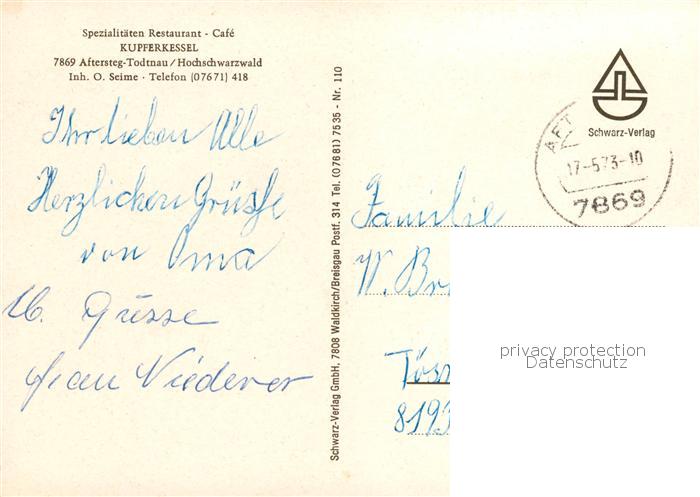 Spezialitäten Restaurant - Café
KUPFERKESSEL
7869 Aftersteg-Todtnau / Hochschwarzwald
Inh. O. Seime · Telefon (07671) 418
Ihr lieben Alle
Herzlichen Grüsse
von Oma
Lb. Grüsse
Frau Niederer
Schwarz-Verlag GmbH, 7808 Waldkirch/Breisgau Postf. 314 Tel. (0 76 81) 75 35 - Nr. 110
Schwarz-Verlag
AFT
17-5.73-10
7869
Familie
W. Br
Töss
8193
privacy protection
Datenschutz